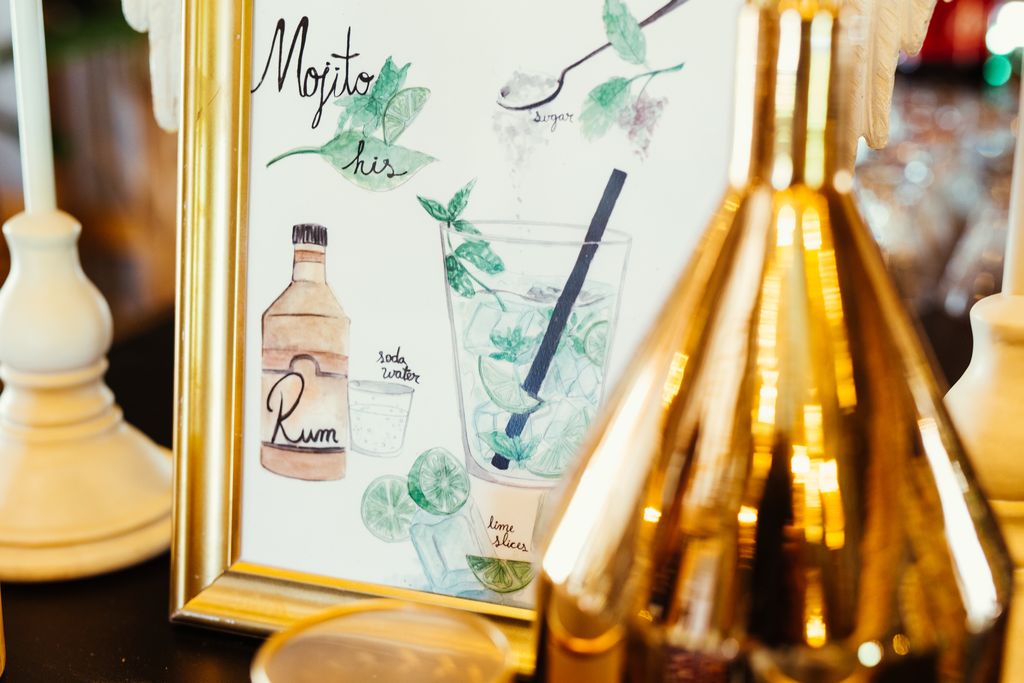 Mojito
his
sugar
soda
water
Rum
lime
slices